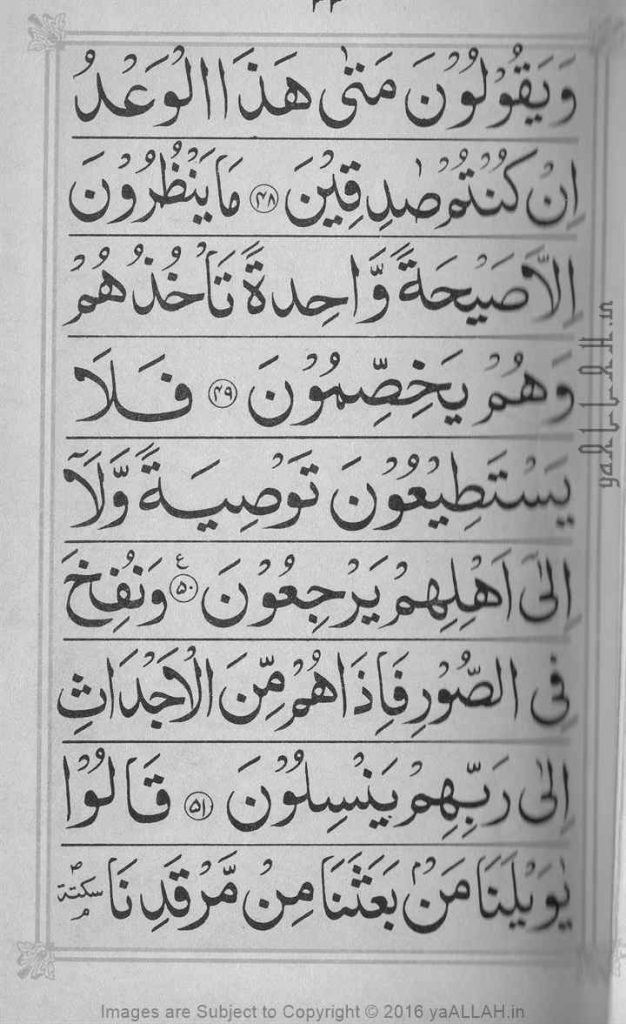 وَيَقُوْلُوْنَ مَتٰى هٰذَا الْوَعْدُ
اِنْ كُنْتُمْ صٰدِقِيْنَ ۝۴۸ مَا يَنْظُرُوْنَ
اِلَّا صَيْحَةً وَّاحِدَةً تَاْخُذُهُمْ
وَهُمْ يَخِصِّمُوْنَ ۝۴۹ فَلَا
يَسْتَطِيْعُوْنَ تَوْصِيَةً وَّلَاۤ
اِلٰٓى اَهْلِهِمْ يَرْجِعُوْنَ ۝۵۰ ع وَنُفِخَ
فِى الصُّوْرِ فَاِذَا هُمْ مِّنَ الْاَجْدَاثِ
اِلٰى رَبِّهِمْ يَنْسِلُوْنَ ۝۵۱ قَالُوْا
يٰوَيْلَنَا مَنْۢ بَعَثَنَا مِنْ مَّرْقَدِنَا سكتة
yaALLAH.in
Images are Subject to Copyright © 2016 yaALLAH.in